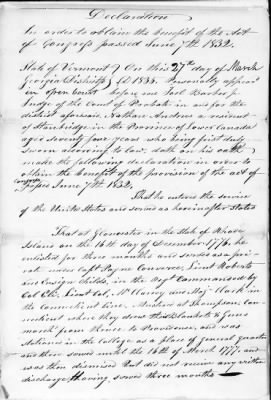 Declaration
In order to obtain the benefit of the Act
of Congress passed June 7th 1832.
State of Vermont } On this 27th day of March
Georgia District } 1833. Personally appeared
in open Court before me Joel Barber Jr
Judge of the Court of Probate in and for the
district aforesaid Nathan Andrus a resident
of Stanbridge in the Province of Lower Canada
aged seventy four years who being first duly
sworn according to law, doth on his oath
make the following declaration in order to
obtain the benefit of the provision of the act of
Congress June 7th 1832.
That he entered the service
of the United States and served as hereinafter stated
That at Gloucester in the State of Rhode
Island on the 16th day of December 1776 he
enlisted for three months and served as a private
under Capt Payne Converse, Lieut Roberts
and Ensign Childs, in the Regt Commanded by
Col Ely, Lieut Col. and Maj Clark in
the Connecticut Line, marched at Thompson, Con-
necticut where they drew their blankets & guns
march from thence to Providence, and was
stationed in the College as a place of general quarters
and there served until the 16th of March 1777, and
was then dismissed but did not receive any written
discharge having served three months